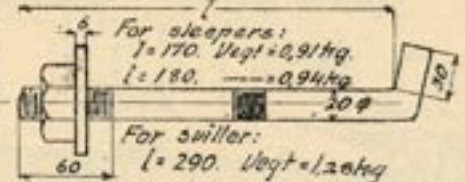 l
6
For sleepers:
l = 170. Vegt = 0,91 kg.
l = 180. —"— = 0,94 kg.
30
20 φ
60
For sviller:
l = 290. Vegt = 1,28 kg